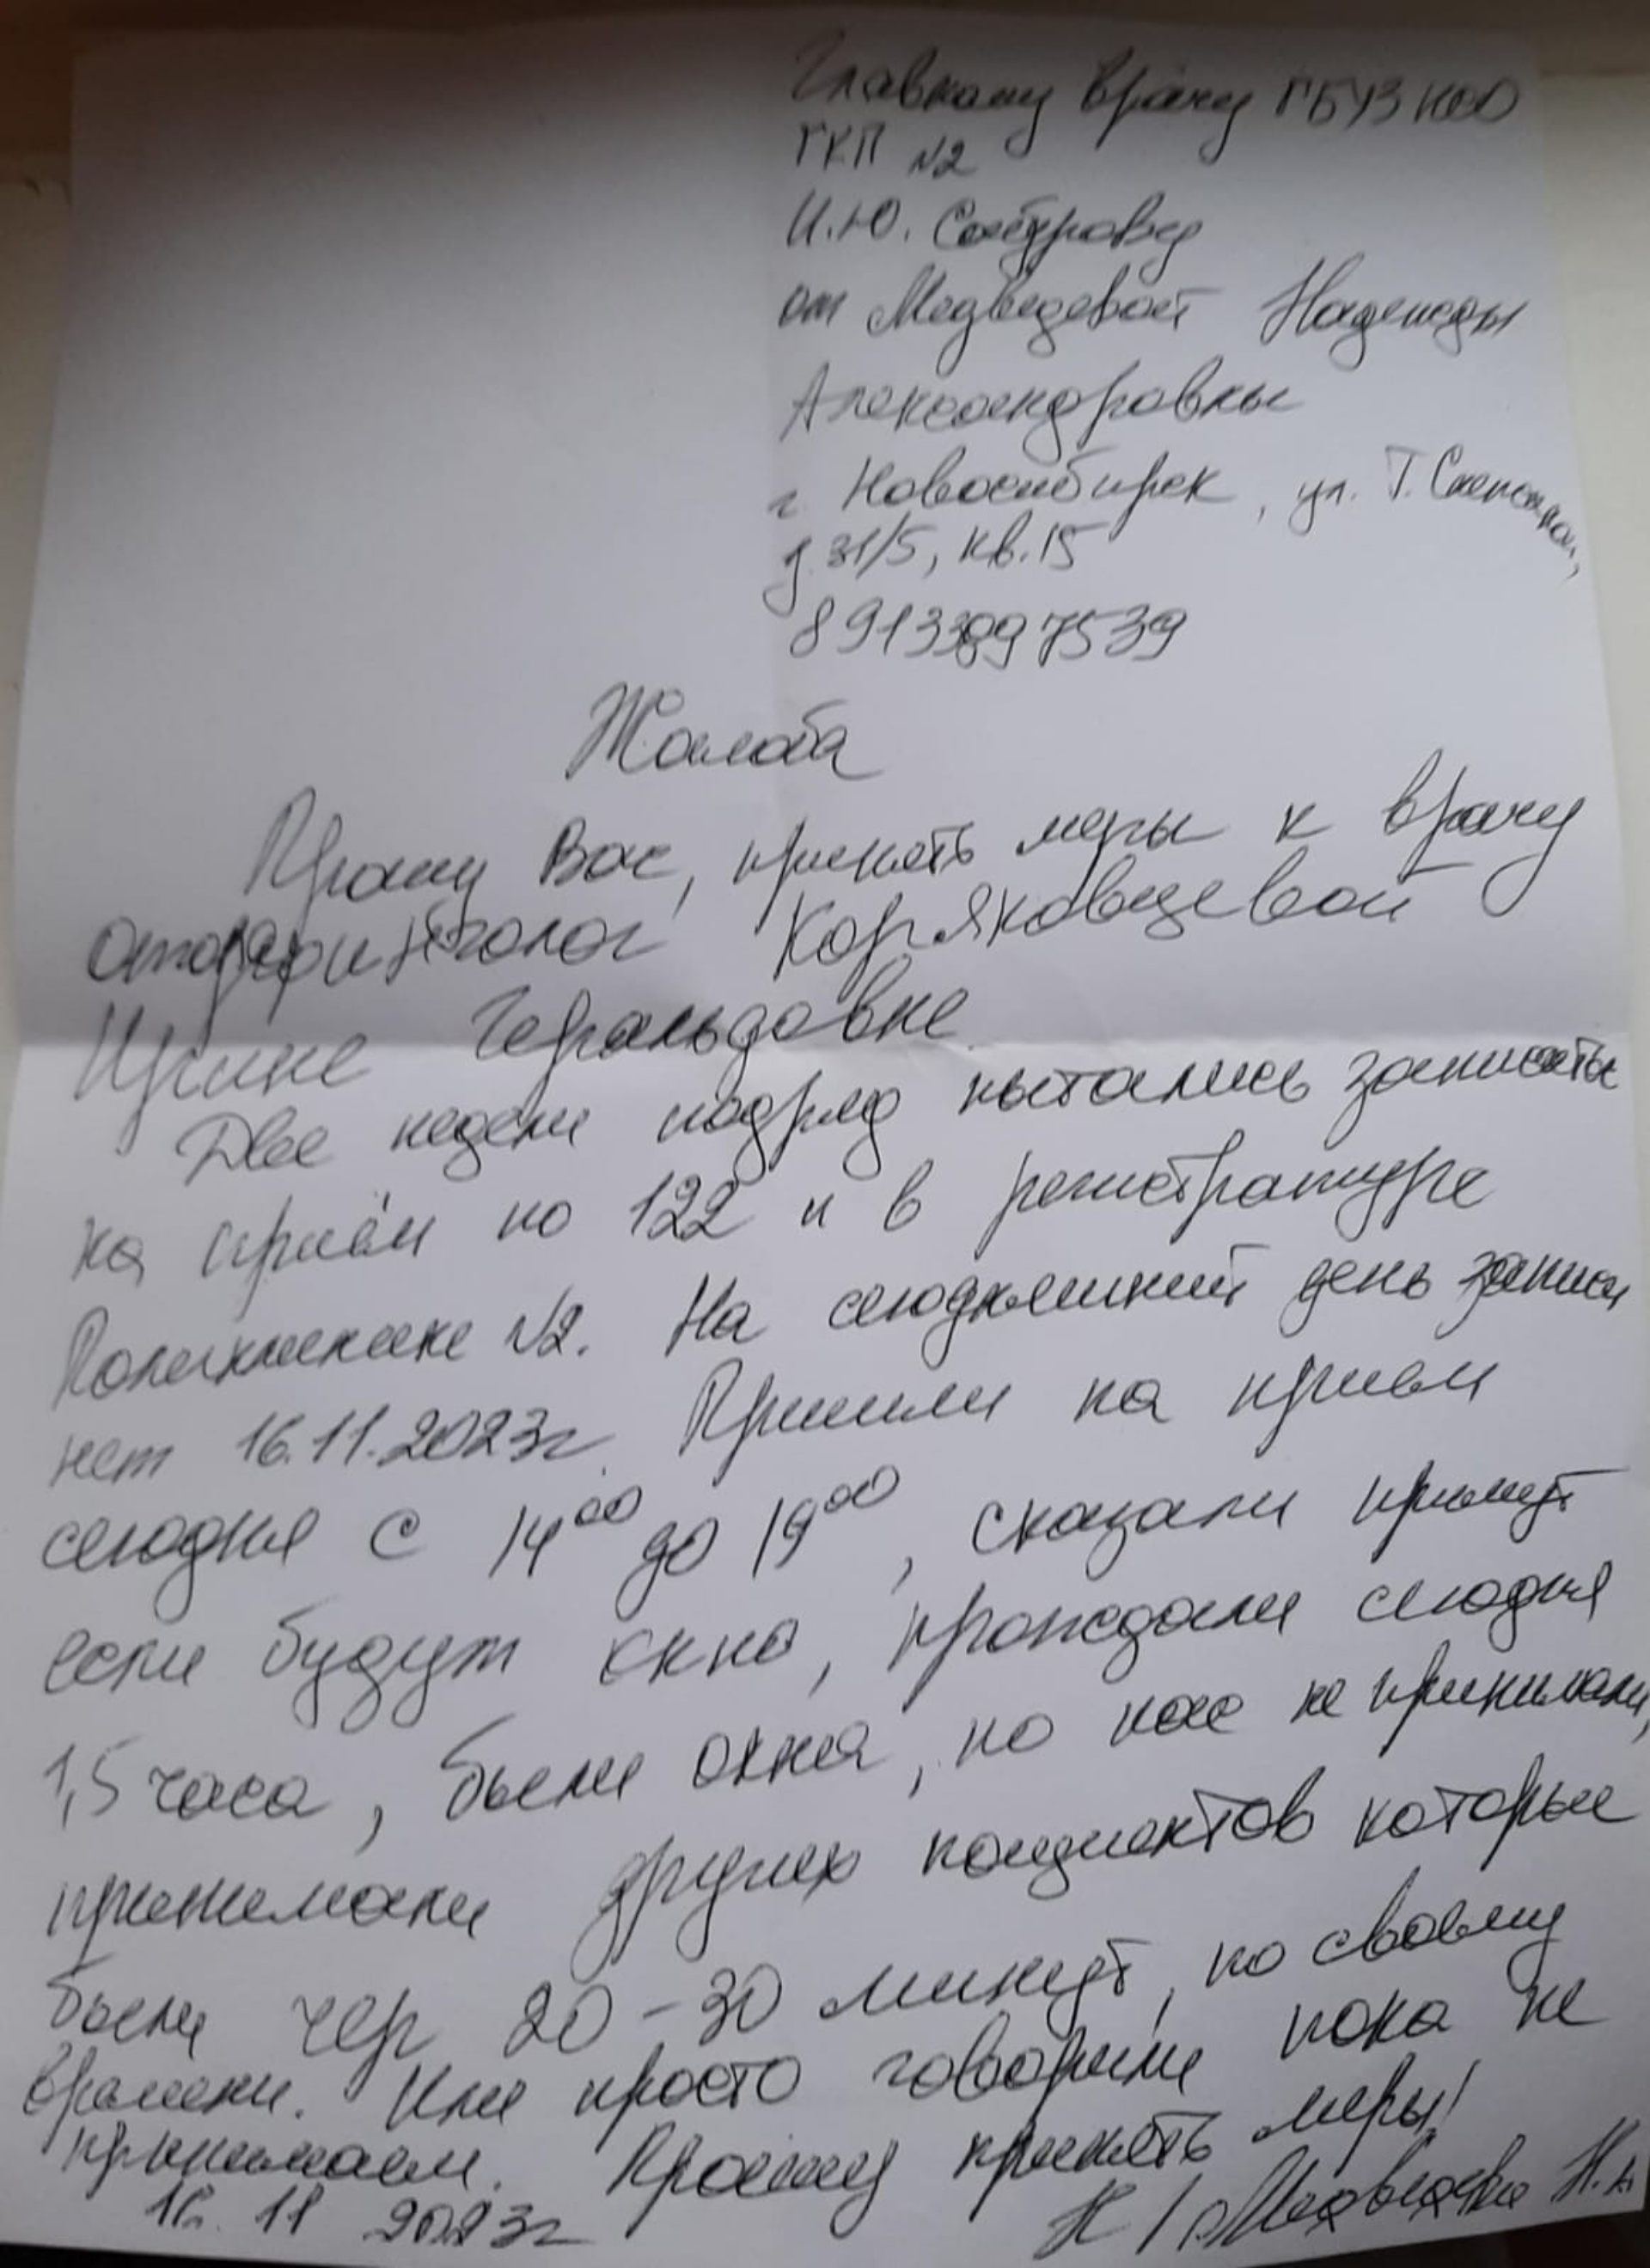 Главному врачу ГБУЗ НСО
ГКП №2
И.Ю.
от Медведевой Надежды
Александровны
г. Новосибирск, ул. Т. Снежиной,
д. 31/5, кв. 15
89133897539
Жалоба
Прошу Вас, принять меры к врачу
Коряковцевой
Ирине Геральдовне.
Две недели подряд пытались записаться
на приём по 122 и в регистратуре
Поликлинике №2. На сегодняшний день записи
нет 16.11.2023г. Пришли на приём
сегодня с 14⁰⁰ до 19⁰⁰, сказали примут
если будут окна, прождали сегодня
1,5 часа, были окна, но нас не принимали,
принимали других пациентов которые
были чер 20-30 минут, по своему
времени. Или просто говорили пока не
принимаем. Прошу принять меры!
16. 11 2023г Н / Медведева Н.А